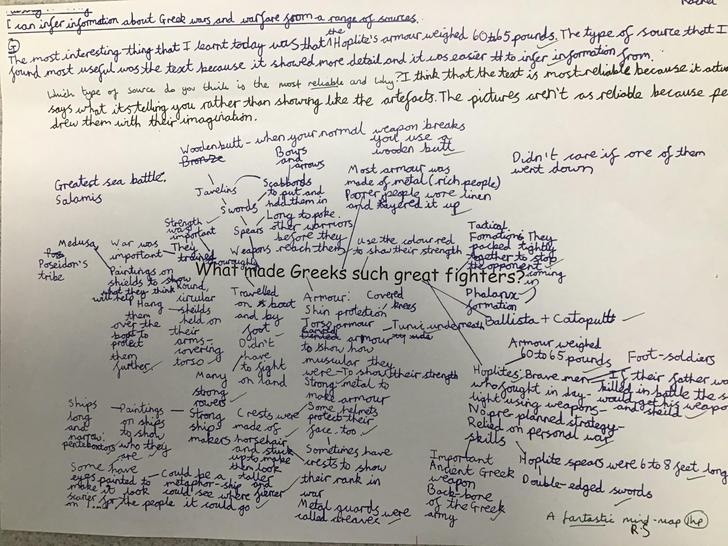 I can infer information about Greek wars and warfare from a range of sources.
The most interesting thing that I learnt today was that the Hoplite's armour weighed 60 to 65 pounds. The type of source that I
found most useful was the text because it showed more detail and it was easier to infer information from.
Which type of source do you think is the most reliable and why? I think that the text is most reliable because it
says what it's telling you rather than showing like the artefacts. The pictures aren't as reliable because
drew them with their imagination.
Wooden butt - when your normal weapon breaks
you use a
wooden butt
Bronze
Bows
and
arrows
Javelins
Scabbords
to put and
hold them in
Swords
Spears
Long to poke
other warriors
before they
reach them
Weapons
Most armour was
made of metal (rich people)
Poorer people wore linen
and layered it up
Didn't care if one of them
went down
Greatest sea battle.
Salamis
Strength
was
important
They
trained
thouroughly
use the colour red
to show their strength
Tactical
Fomations They
packed tightly
together to stop
the opponent
coming
in
Phalanx
formation
Medusa
Poseidon's
tribe
War was
important
Paintings on
shields to show
what they think
will help
Hang
them
over the
boat to
protect
them
further
Round,
circular
sheilds
held on
their
arms -
covering
torso
What made Greeks such great fighters?
Travelled
on boat
and by
foot
Didn't
have
to fight
on land
Armour: Covered
knees
Shin protection
Torso armour
Tunic underneath
armour
to show how
muscular they
were - To show their strength
Strong metal to
make armour
Some helmets
protect their
face too
Ballista + Catapult
Armour weighed
60 to 65 pounds
Foot-soldiers
Hoplites: Brave men
who fought in day-
light using weapons
No pre-planned strategy
Relied on personal war
skills
If their father was
killed in battle the
would get his
and sheild
Many
strong
rowers
Strong
ship
makers
Crests were
made of
horsehair
and stuck
up to make
them look
taller
and
fiercer
Sometimes have
crests to show
their rank in
war
Metal guards were
called
Ships
long
and
narrow.
penteboxters
Paintings
on ships
to show
who they
are
Some have
eyes painted to
make it look
scarier for the people
Could be a
metaphor - ship
could see where
it could go
Important
Ancient Greek
weapon
Back-bone
of the Greek
army
Hoplite spears were 6 to 8 feet long
Double-edged swords
A fantastic mind-map